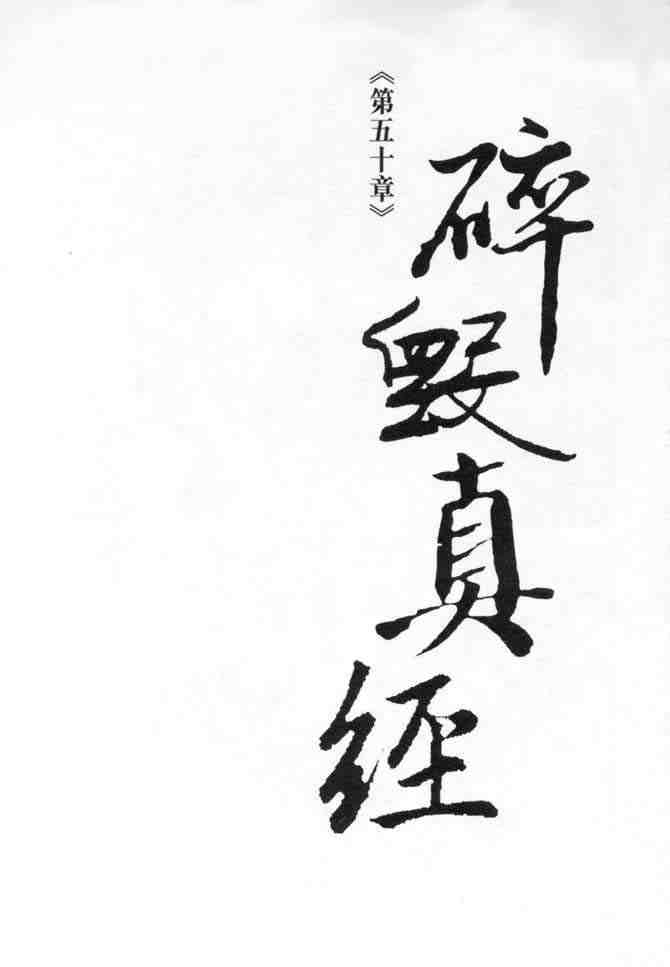 碎毀真經
《第五十章》